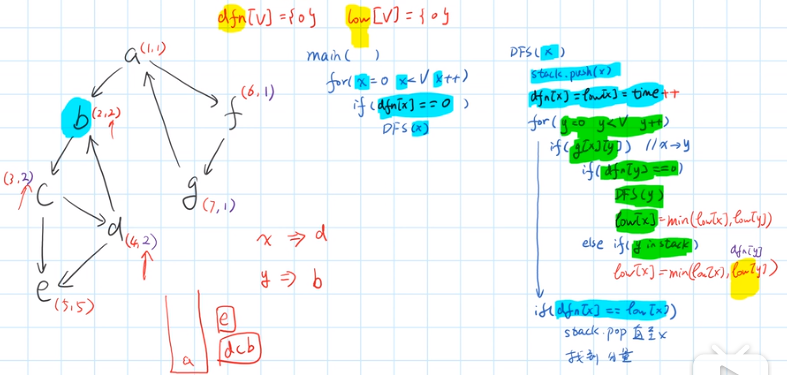 dfn[V] = {0} low[V] = {0}
a (1,1)
b (2,2)
f (6,1)
(3,2) c
d (4,2)
g (7,1)
e (5,5)
x ⇒ d
y ⇒ b
a
e
dcb
main( )
for( x=0 x<V x++)
if( dfn[x]==0 )
DFS(x)
DFS( x )
stack.push(x)
dfn[x]=low[x]=time++
for( y=0 y<V y++)
if( g[x][y] ) //x→y
if( dfn[y]==0)
DFS(y)
low[x]=min(low[x],low[y])
else if( y in stack )
dfn[y]
low[x]=min(low[x],low[y])
if( dfn[x]==low[x] )
stack.pop 直至x
找到 分量